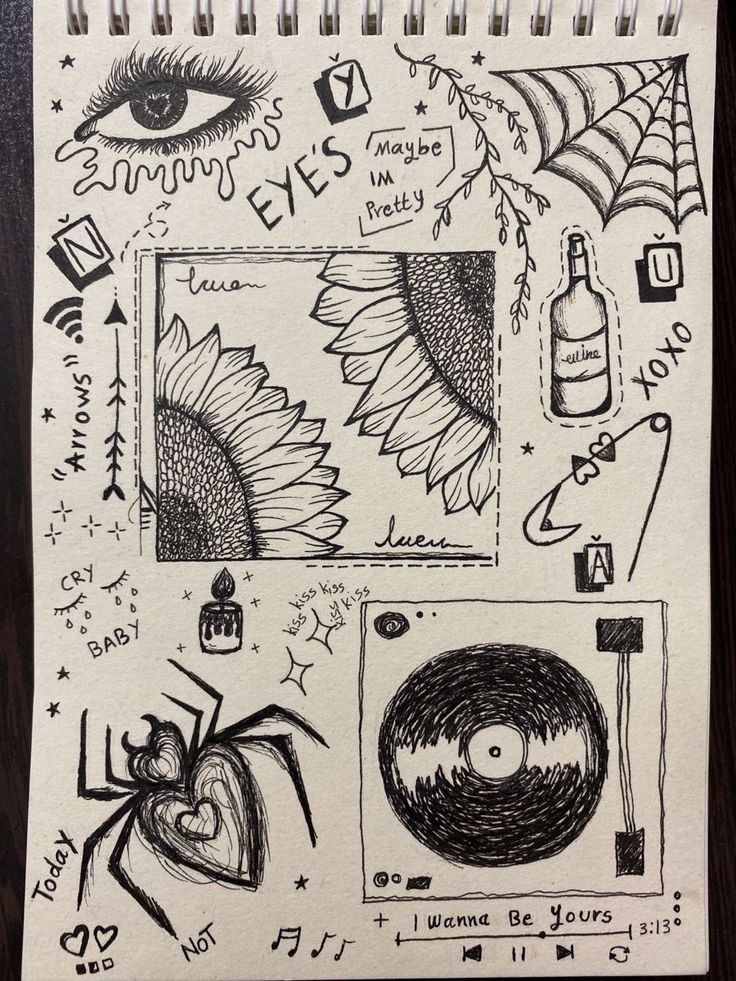 Y
EYE'S
Maybe
IM
Pretty
N
U
XOXO
"Arrows"
A
CRY
BABY
kiss kiss kiss
kiss kiss
Today
NOT
I Wanna Be Yours
3:13